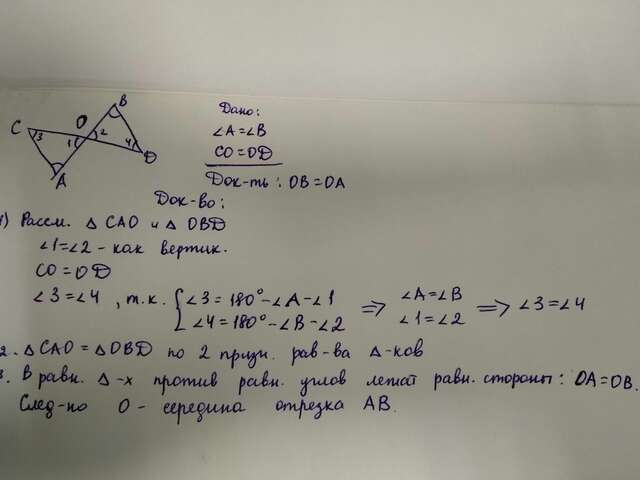 B
C 3 O 2
1 4 D
A
Дано:
∠A=∠B
CO=OD
Док-ть: OB=OA
Док-во:
1) Рассм. △ CAO и △ OBD
∠1=∠2 - как вертик.
CO=OD
∠3=∠4, т.к. { ∠3=180°-∠A-∠1 ⇒ ∠A=∠B ⇒ ∠3=∠4
∠4=180°-∠B-∠2 ∠1=∠2
2. △CAO=△OBD по 2 призн. рав-ва △-ков
3. В равн. △-х против равн. углов лежат равн. стороны: OA=OB.
След-но O - середина отрезка AB.